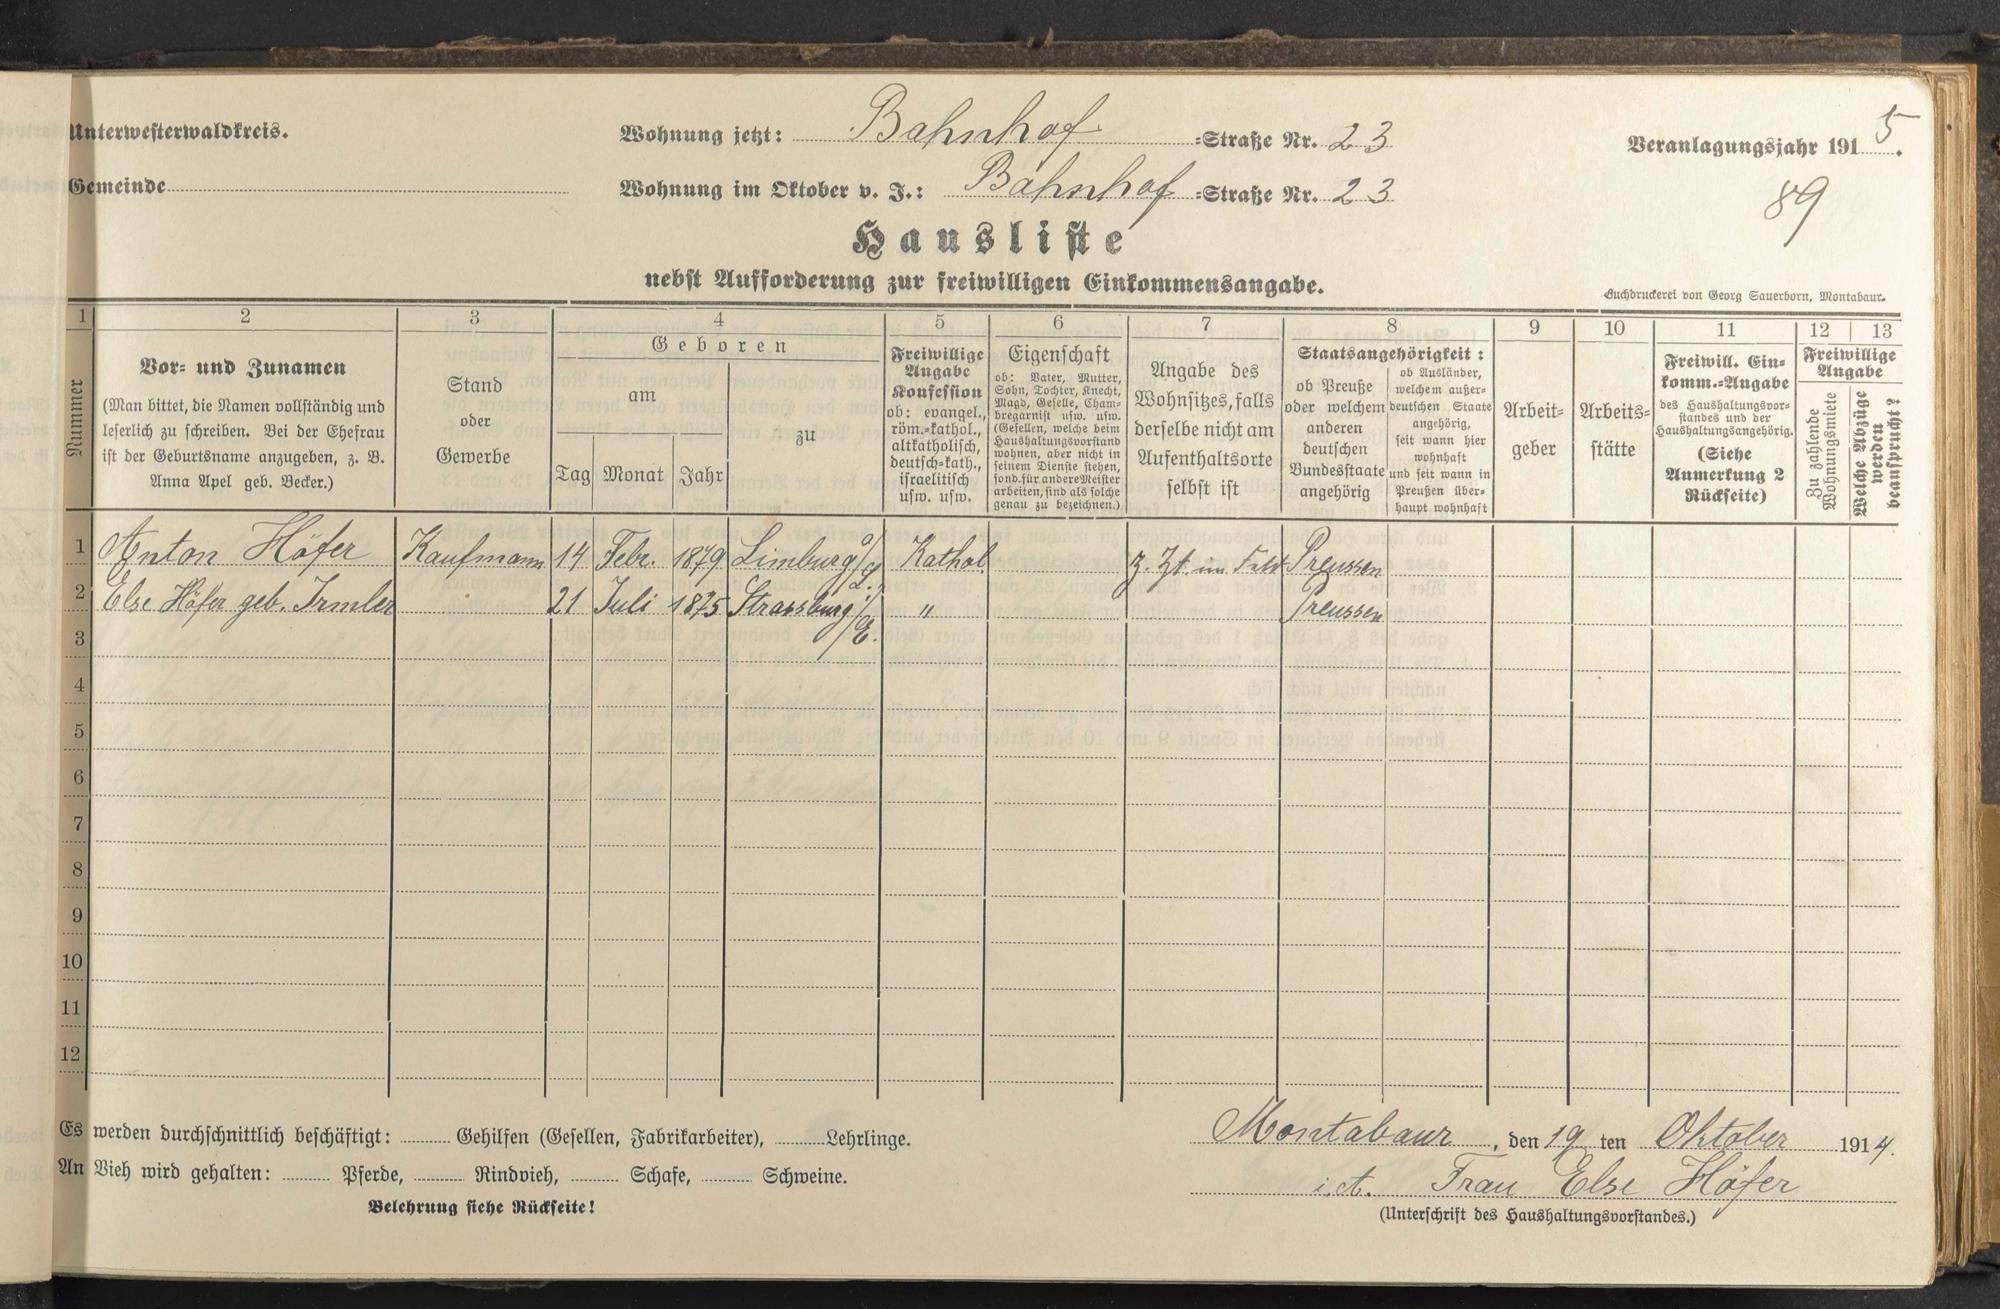 Unterwesterwaldkreis.
Wohnung jetzt: Bahnhof -Straße Nr. 23
Veranlagungsjahr 1915.
Gemeinde
Wohnung im Oktober v. J.: Bahnhof -Straße Nr. 23
89
Hausliste
nebst Aufforderung zur freiwilligen Einkommensangabe.
Buchdruckerei von Georg Sauerborn, Montabaur.
1 2 3 4 5 6 7 8 9 10 11 12 13
Nummer
Vor- und Zunamen
(Man bittet, die Namen vollständig und
leserlich zu schreiben. Bei der Ehefrau
ist der Geburtsname anzugeben, z. B.
Anna Apel geb. Becker.)
Stand
oder
Gewerbe
Geboren
am
Tag Monat Jahr
zu
Freiwillige
Angabe
Konfession
ob: evangel.,
röm.-kathol.,
altkatholisch,
deutsch-kath.,
israelitisch
usw. usw.
Eigenschaft
ob: Vater, Mutter,
Sohn, Tochter, Knecht,
Magd, Geselle, Cham-
bregarnist usw. usw.
(Gesellen, welche beim
Haushaltungsvorstand
wohnen, aber nicht in
seinem Dienste stehen,
sond. für andere Meister
arbeiten, sind als solche
genau zu bezeichnen.)
Angabe des
Wohnsitzes, falls
derselbe nicht am
Aufenthaltsorte
selbst ist
Staatsangehörigkeit:
ob Preuße
oder welchem
anderen
deutschen
Bundesstaate
angehörig
ob Ausländer,
welchem außer-
deutschen Staate
angehörig,
seit wann hier
wohnhaft
und seit wann in
Preußen über-
haupt wohnhaft
Arbeit-
geber
Arbeits-
stätte
Freiwill. Ein-
komm.-Angabe
des Haushaltungsvor-
standes und der
Haushaltungsangehörig.
(Siehe
Anmerkung 2
Rückseite)
Freiwillige
Angabe
Zu zahlende
Wohnungsmiete
Welche Abzüge
werden
beansprucht?
1 Anton Höfer Kaufmann 14 Febr. 1879 Limburg a/L. Kathol. z. Zt. im Feld Preussen
2 Else Höfer geb. Irmler 21 Juli 1875 Strassburg i/E. " Preussen
3
4
5
6
7
8
9
10
11
12
Es werden durchschnittlich beschäftigt: Gehilfen (Gesellen, Fabrikarbeiter), Lehrlinge.
An Vieh wird gehalten: Pferde, Rindvieh, Schafe, Schweine.
Belehrung siehe Rückseite!
Montabaur, den 19 ten Oktober 1914.
i. A. Frau Else Höfer
(Unterschrift des Haushaltungsvorstandes.)